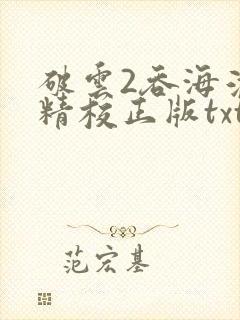 破雲2吞海
精校正版txt
范宏基